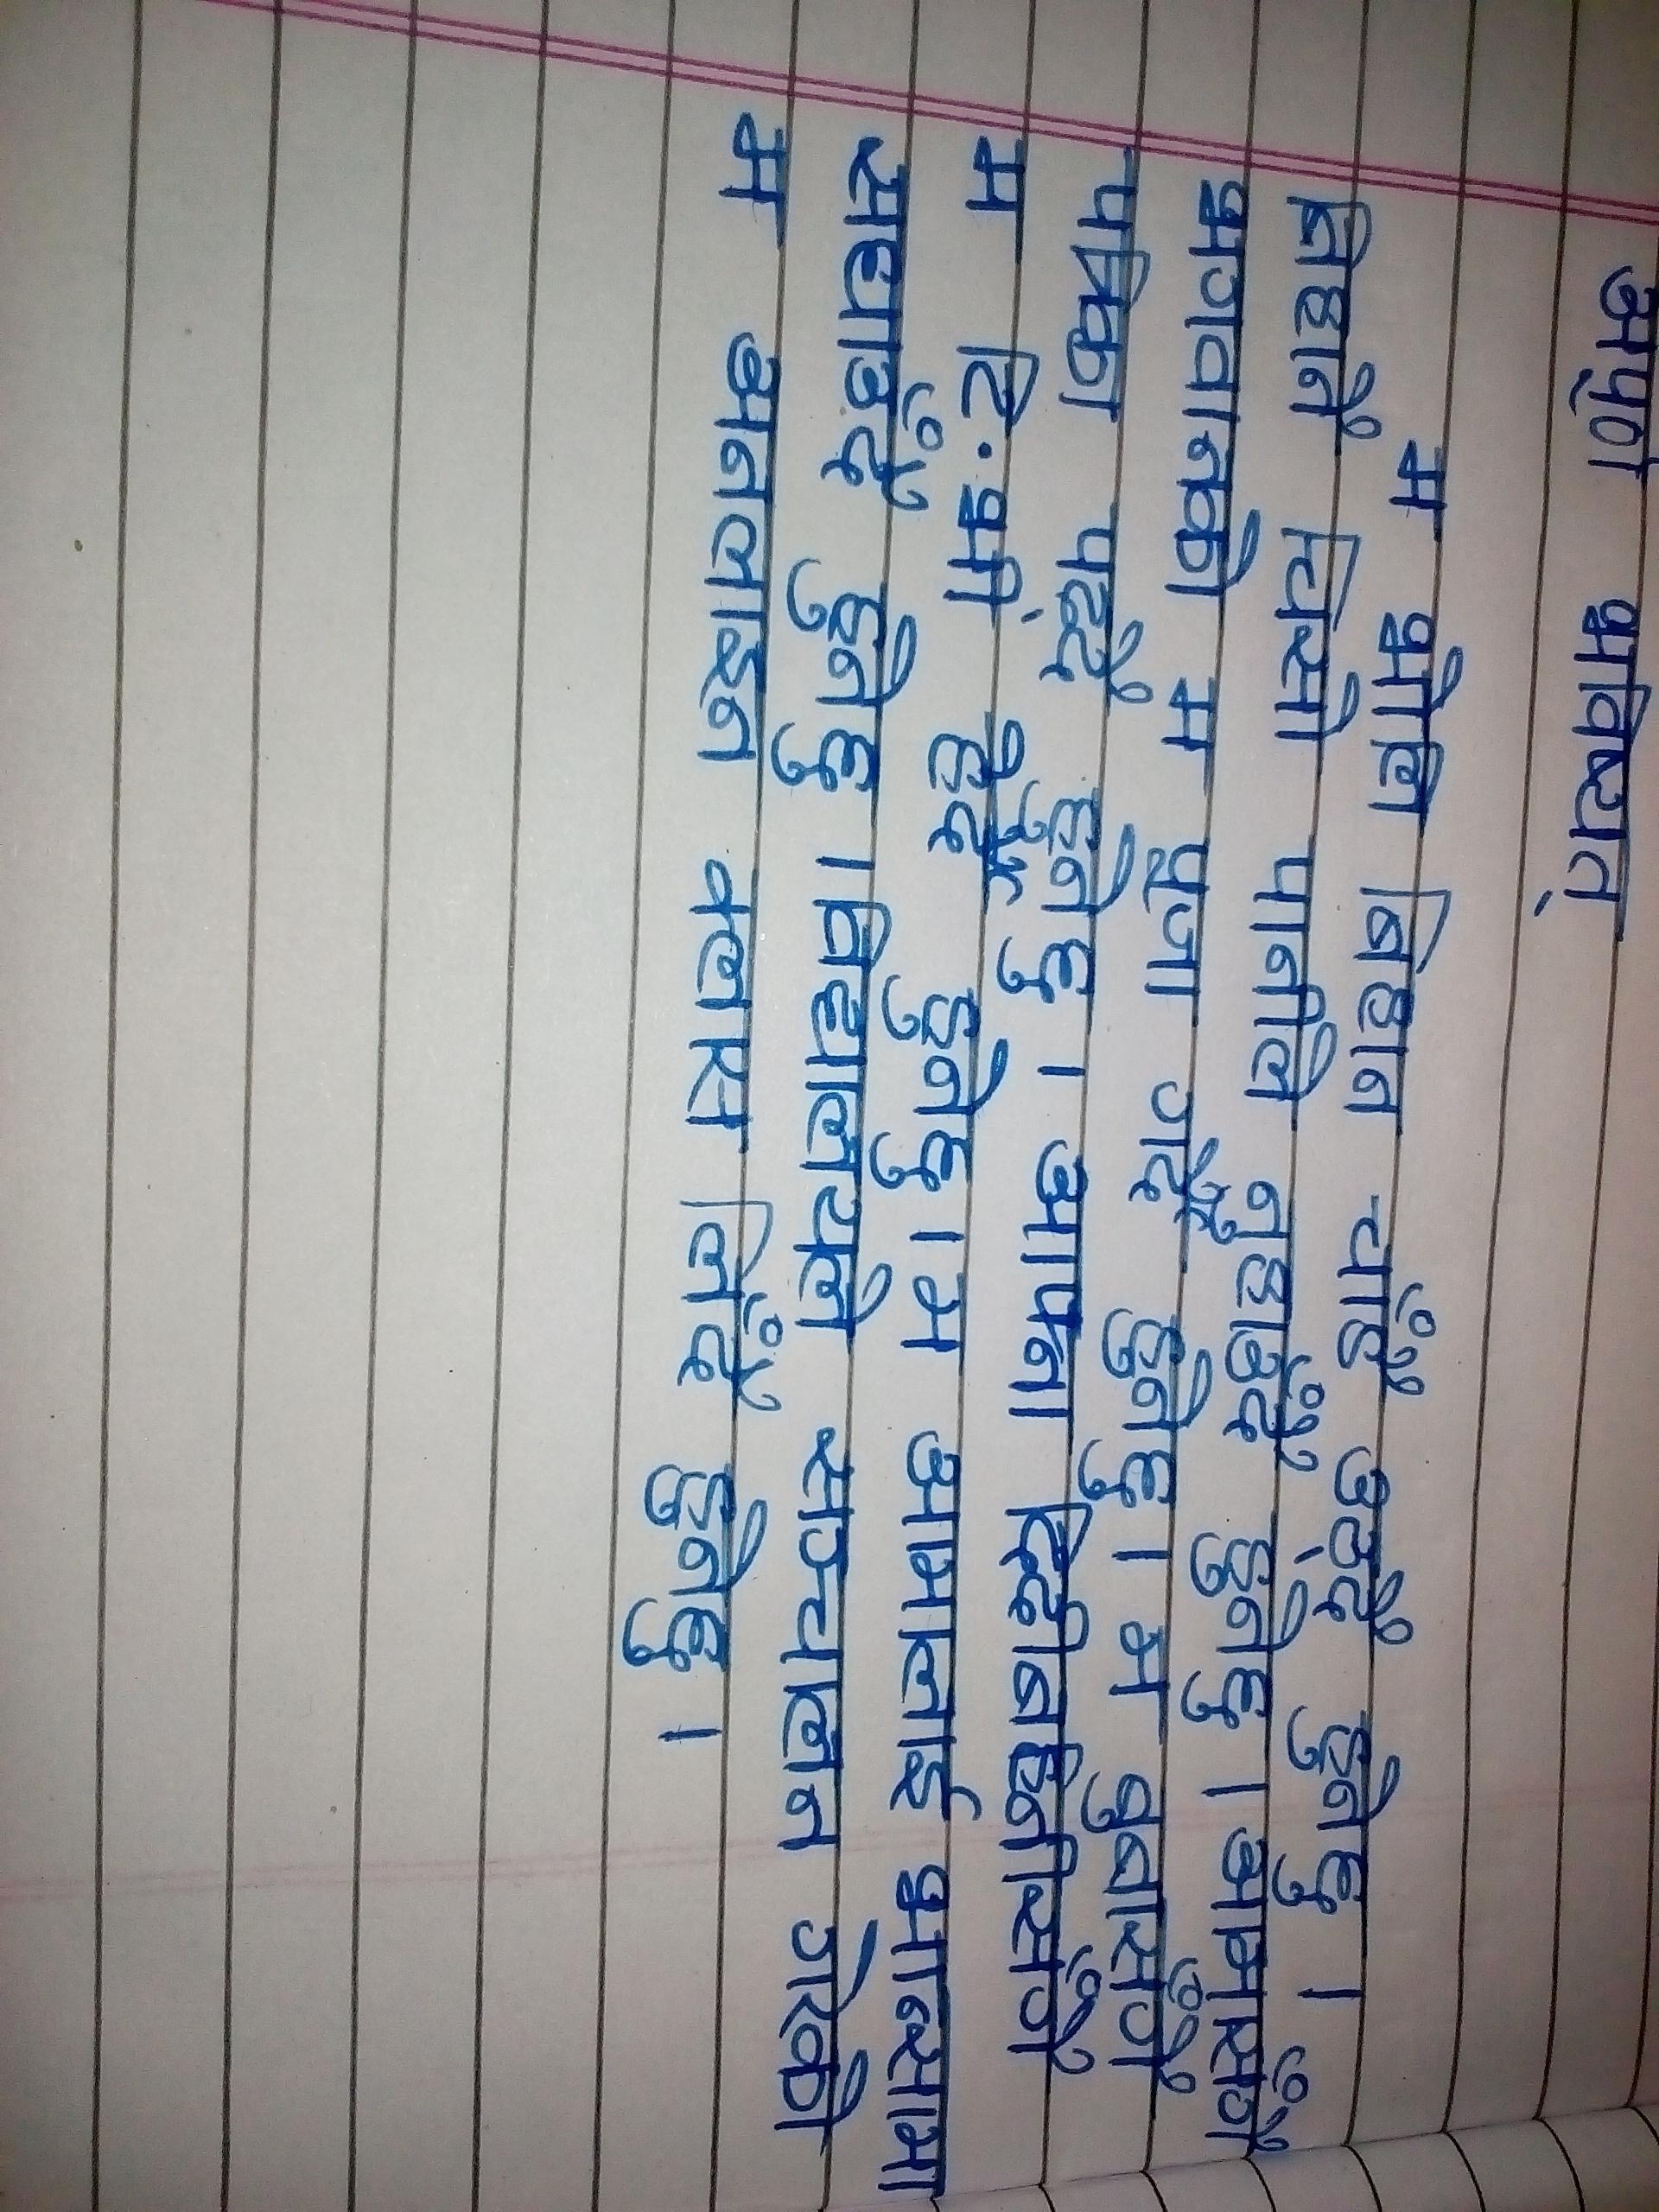 अपुर्ण भविष्यत्
म भोलि बिहान चाँडै उठ्दै हुनेछु ।
बिहानै चिसो पानीले नुहाउँदै हुनेछु । आमासँगै
भगवानको म पुजा गर्दै हुनेछु । म बुबासँगै
पत्रिका पढ्दै हुनेछु । आफ्ना दिदीबहिनीसँगै
म टि.भी हेर्दै हुनेछु । म आमालाई भान्सामा
सघाउँदै हुनेछु । विद्यालयले सञ्चालन गरेको
म अनलाइन क्लास लिँदै हुनेछु ।